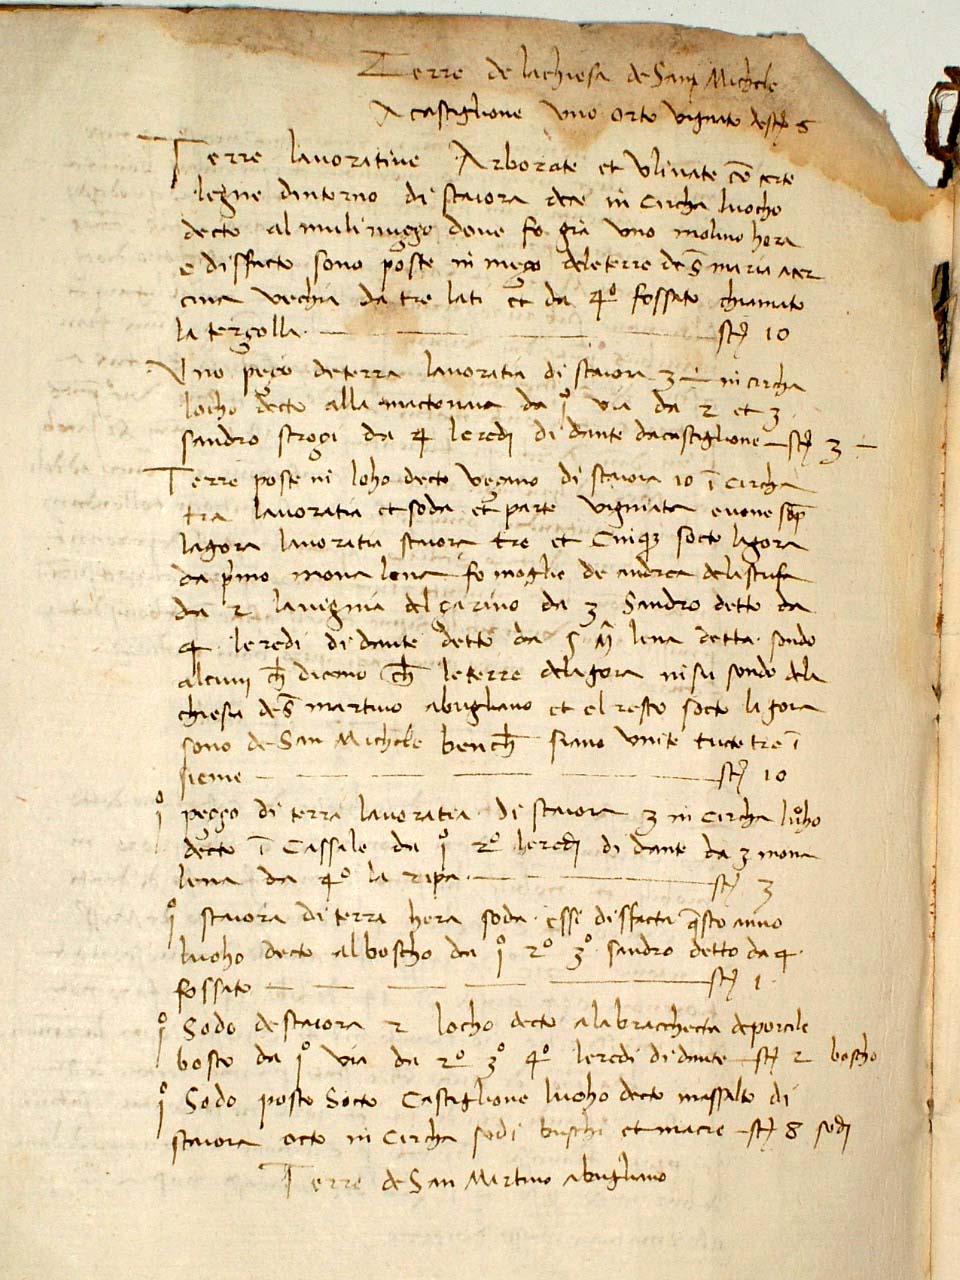 Terre de lachiesa de San Michele
A castiglione uno orto vignato de stª 6
Terre lavoratine Arborate et Ulivate cõ certe
legne dintorno di staiora dece in Circha luocho
decto al mulinuzzo dove fo già uno molino hora
e disfacto sono poste in mezo dele terre de S. maria a cer
cina vechia da tre lati et da 4º fossato chiamato
la terzolla stª 10
Uno pezo de terra lavoratia di staiora 3 in circha
locho decto alla da iº via da 2 et 3
sandro strozi da 4 leredi di dante da castiglione stª 3
Terre poste in loho decto di staiora 10 ĩ Circha
tra lavoratia et soda et parte vigniata evone sop
lagora lavoratia staiora tre et Cinq socto lagora
da pimo mona lena fo moglie de andrea dela stufa
da 2 la vignia del da 3 Sandro detto da
4 leredi di dante detto da 5 Mª lena detta sondo
alcuni ch dicono ch le terre delagora in su sondo dela
chiesa de S. martino abugliano et el resto socto lagora
sono de San Michele bench siano Unite tucte tre ĩ
sieme stª 10
iº pezzo di terra lavoratia di staiora 3 in circha luoho
decto ĩ Cassale da iº 2º leredi di dante da 3 mona
lena da 4º la ripa stª 3
iº staiora di terra hora soda essi disfacta qsto anno
luoho decto al boscho da iº 2º 3º sandro detto da 4
fossato stª 1
iº Sodo de staiora 2 locho decto ala bracchecta de porcile
bosco da iº via da 2º 3º 4º leredi di dante stª 2 boscho
iº Sodo posto Socto Castiglione luoho decto massalto di
staiora octo in Circha sodi buschi et macie stª 8 sodi
Terre de San Martino abugliano